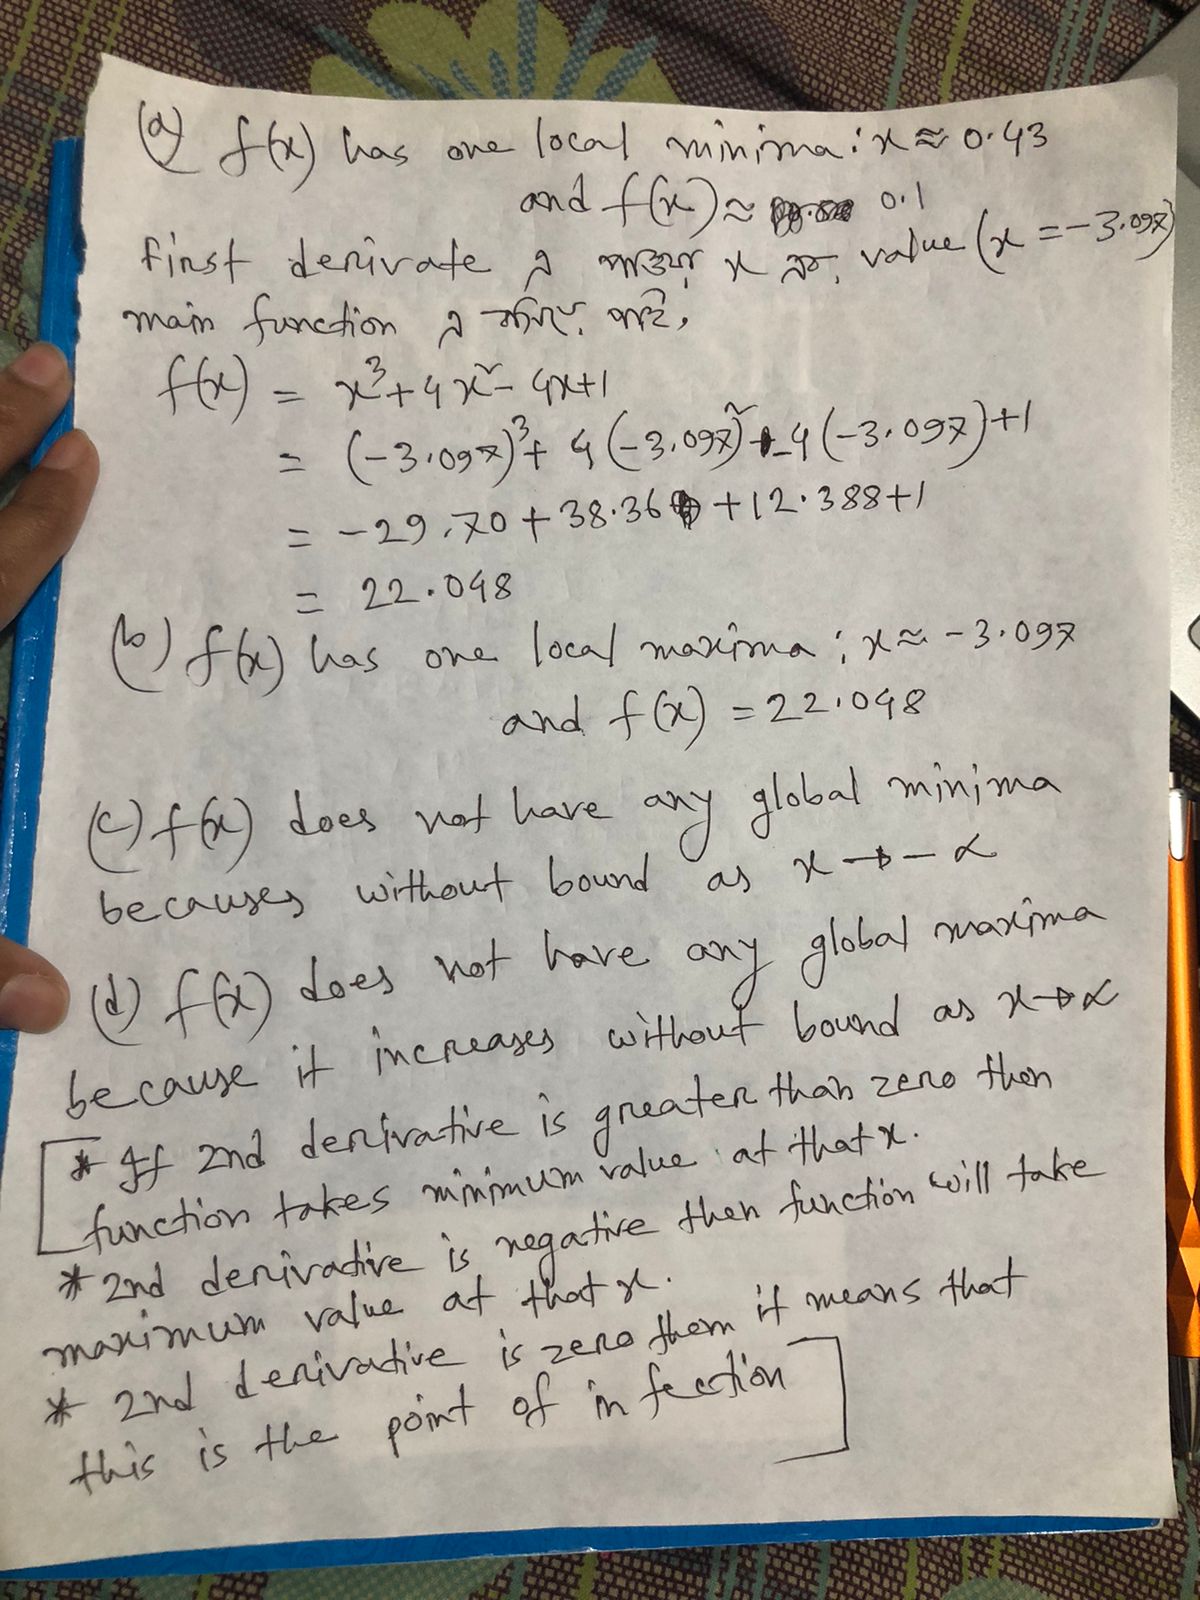 (a) f(x) has one local minima : x ≈ 0.43
and f(x) ≈ 0.1
first derivate এ পাওয়া x এর value (x = -3.097)
main function এ বসিয়ে পাই,
f(x) = x³ + 4x² - 4x + 1
= (-3.097)³ + 4(-3.097)² - 4(-3.097) + 1
= -29.70 + 38.36 + 12.388 + 1
= 22.048
(b) f(x) has one local maxima ; x ≈ -3.097
and f(x) = 22.048
(c) f(x) does not have any global minima
becauses without bound as x → - ∝
(d) f(x) does not have any global maxima
because it increases without bound as x → ∝
* If 2nd derivative is greater than zero then
function takes minimum value at that x.
* 2nd derivative is negative then function will take
maximum value at that x.
* 2nd derivative is zero them it means that
this is the point of infection